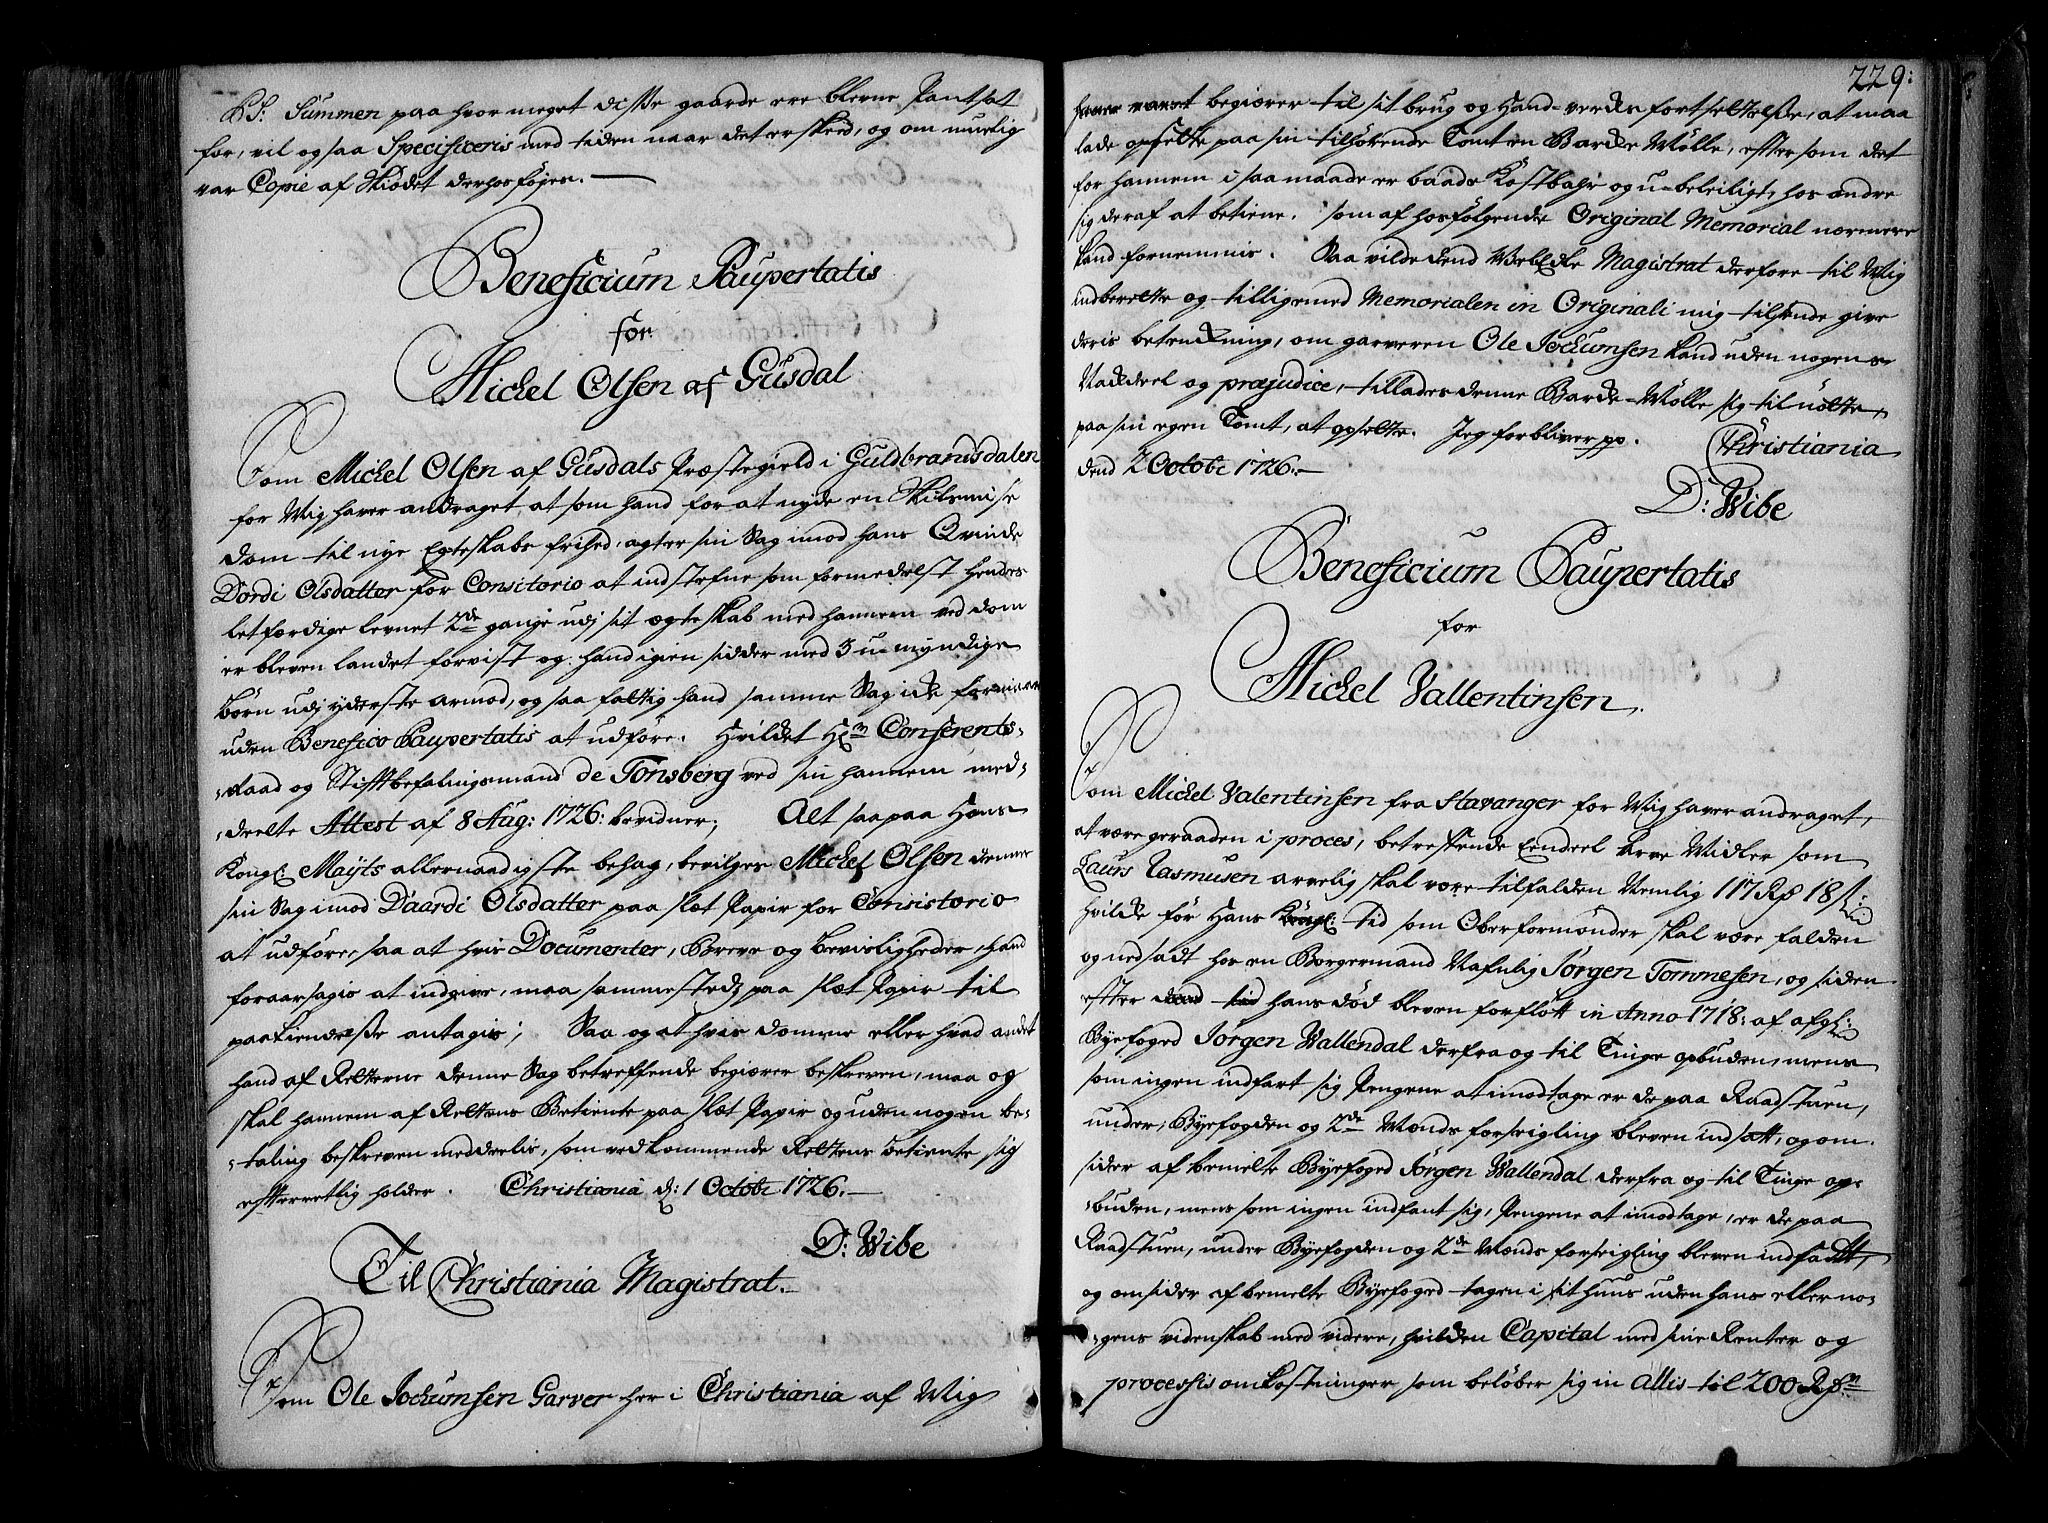 PS: Summen paa hvor meget disse gaarde ere blevne Pantsat
for, vil og saa Specificeris med tiden naar det er skeed, og om muelig
var Copie af Skiödet derhos föjes.
Beneficium Paupertatis
for
Michel Olsen af Gusdal
Som Michel Olsen af Gusdals Præstegield i Guldbransdalen
for Mig haver andraget at som hand for at nyde en Skilsmise
dom til nye Egteskabs frihed, agter sin Sag imod hans Qvinde
Dordi Olsdatter for Consitorio at indstefne som formedelst hendes
letfærdige levnet 2de gange udj sit ægteskab med hannem ved dom
er bleven landet forvist og hand igien sidder med 3 u-myndige
Börn udj yderste armod, og saa fattig hand samme Sag icke formaar
uden Benefico Paupertatis at udföre. Hvilcket Hr Conferents-
Raad og Stiftbefalingsmand de Tonsberg ved sin hannem med-
deelte Attest af 8 Aug: 1726: bevidner; Alt saa paa Hans
Kongl: Mayts allernaadigste behag, bevilges Michel Olsen denne
sin Sag imod Daardi Olsdatter paa slæt Papir for Consistorio
at udföre, saa at hvis Documenter, Breve og beviisligheder, hand
foraarsagis at indgive, maa sammesteds paa slæt Papir til
paakiendelse antagis; Saa og at hvis domme eller hvad andet
hand af Retterne denne Sag betreffende begiærer beskreven, maa og
skal hannem af Rettens Betiente paa slæt Papir og uden nogen be-
taling beskreven meddeelis, som vedkommende Rettens betiente sig
efterretlig holder. Christiania d: 1 Octobr 1726.
D: Wibe
Til Christiania Magistrat.
Som Ole Jochumsen Garver her i Christiania af Mig
229:
begiærer til sit brug og Hand-vercks fortsettelse, at maa
lade opsette paa sin tilhörende Tomt en Barcke Mölle, eftersom det
for hannem i saa maade er baade Kostbahr og u-beleiligt, hos andre
sig deraf at betiene. som af hosfölgende Original Memorial nærmere
kand fornemmis. Saa vilde dend Velædle Magistrat derfore til Mig
indberette og tilligemed Memorialen in Originali mig tilsende give
deris betenckning, om garveren Ole Jochumsen kand uden nogens
Naddeel og præjudice, tillades denne Barcke-Mölle sig til nötte,
paa sin egen Tomt, at opsette. Jeg forbliver pp. Christiania
dend 2 Octobr 1726.
D: Wibe
Beneficium Paupertatis
for
Michel Vallentinsen.
Som Michel Valentinsen fra Stavanger for Mig haver andraget,
at være geraaden i proces, betreffende Eendeel Arve Midler som
Laurs Rasmusen arvelig skal være tilfalden Nemlig 117 Rd 18 s:
hvilcke for Hans Kongl: tid som Oberformönder skal være falden
og nedsadt hos en Borgermand Nafnlig Jörgen Tommesen, og siden
efter dend tid hans död bleven forflött in Anno 1718: af afgl:
Byefoged Jörgen Wallendal derfra og til Tinge opbuden, mens
som ingen indfant sig Pengene at imodtage er de paa Raadstuen,
under, Byefogden og 2de Mænds forseigling bleven indsatt, og om-
sider af bemelte Byefoged Jörgen Wallendal derfra og til Tinge op-
buden, mens som ingen indfant sig, Pengene at imodtage, er de paa
Raadstuen, under Byefogden og 2de Mænds forseigling bleven indsadtt,
og omsider af bemelte Byefoged tagen i sit huus uden hans eller no-
gens videnskab med videre, hvilcken Capital med sine Renter og
processis omkostninger som belöber sig in allis til 200 Rdr